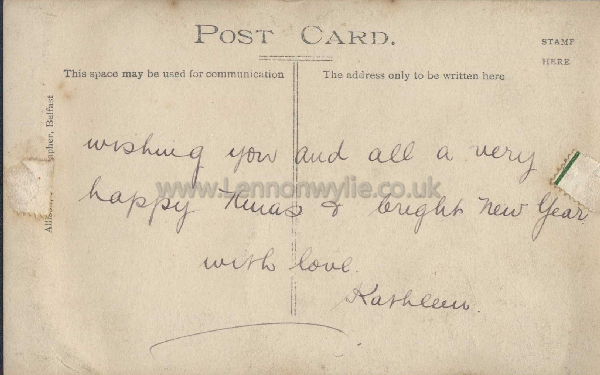 POST CARD.
STAMP
HERE
This space may be used for communication
The address only to be written here
Belfast
wishing you and all a very
www.Lennonwylie.co.uk
happy Xmas & bright New Year
with love.
Kathleen.